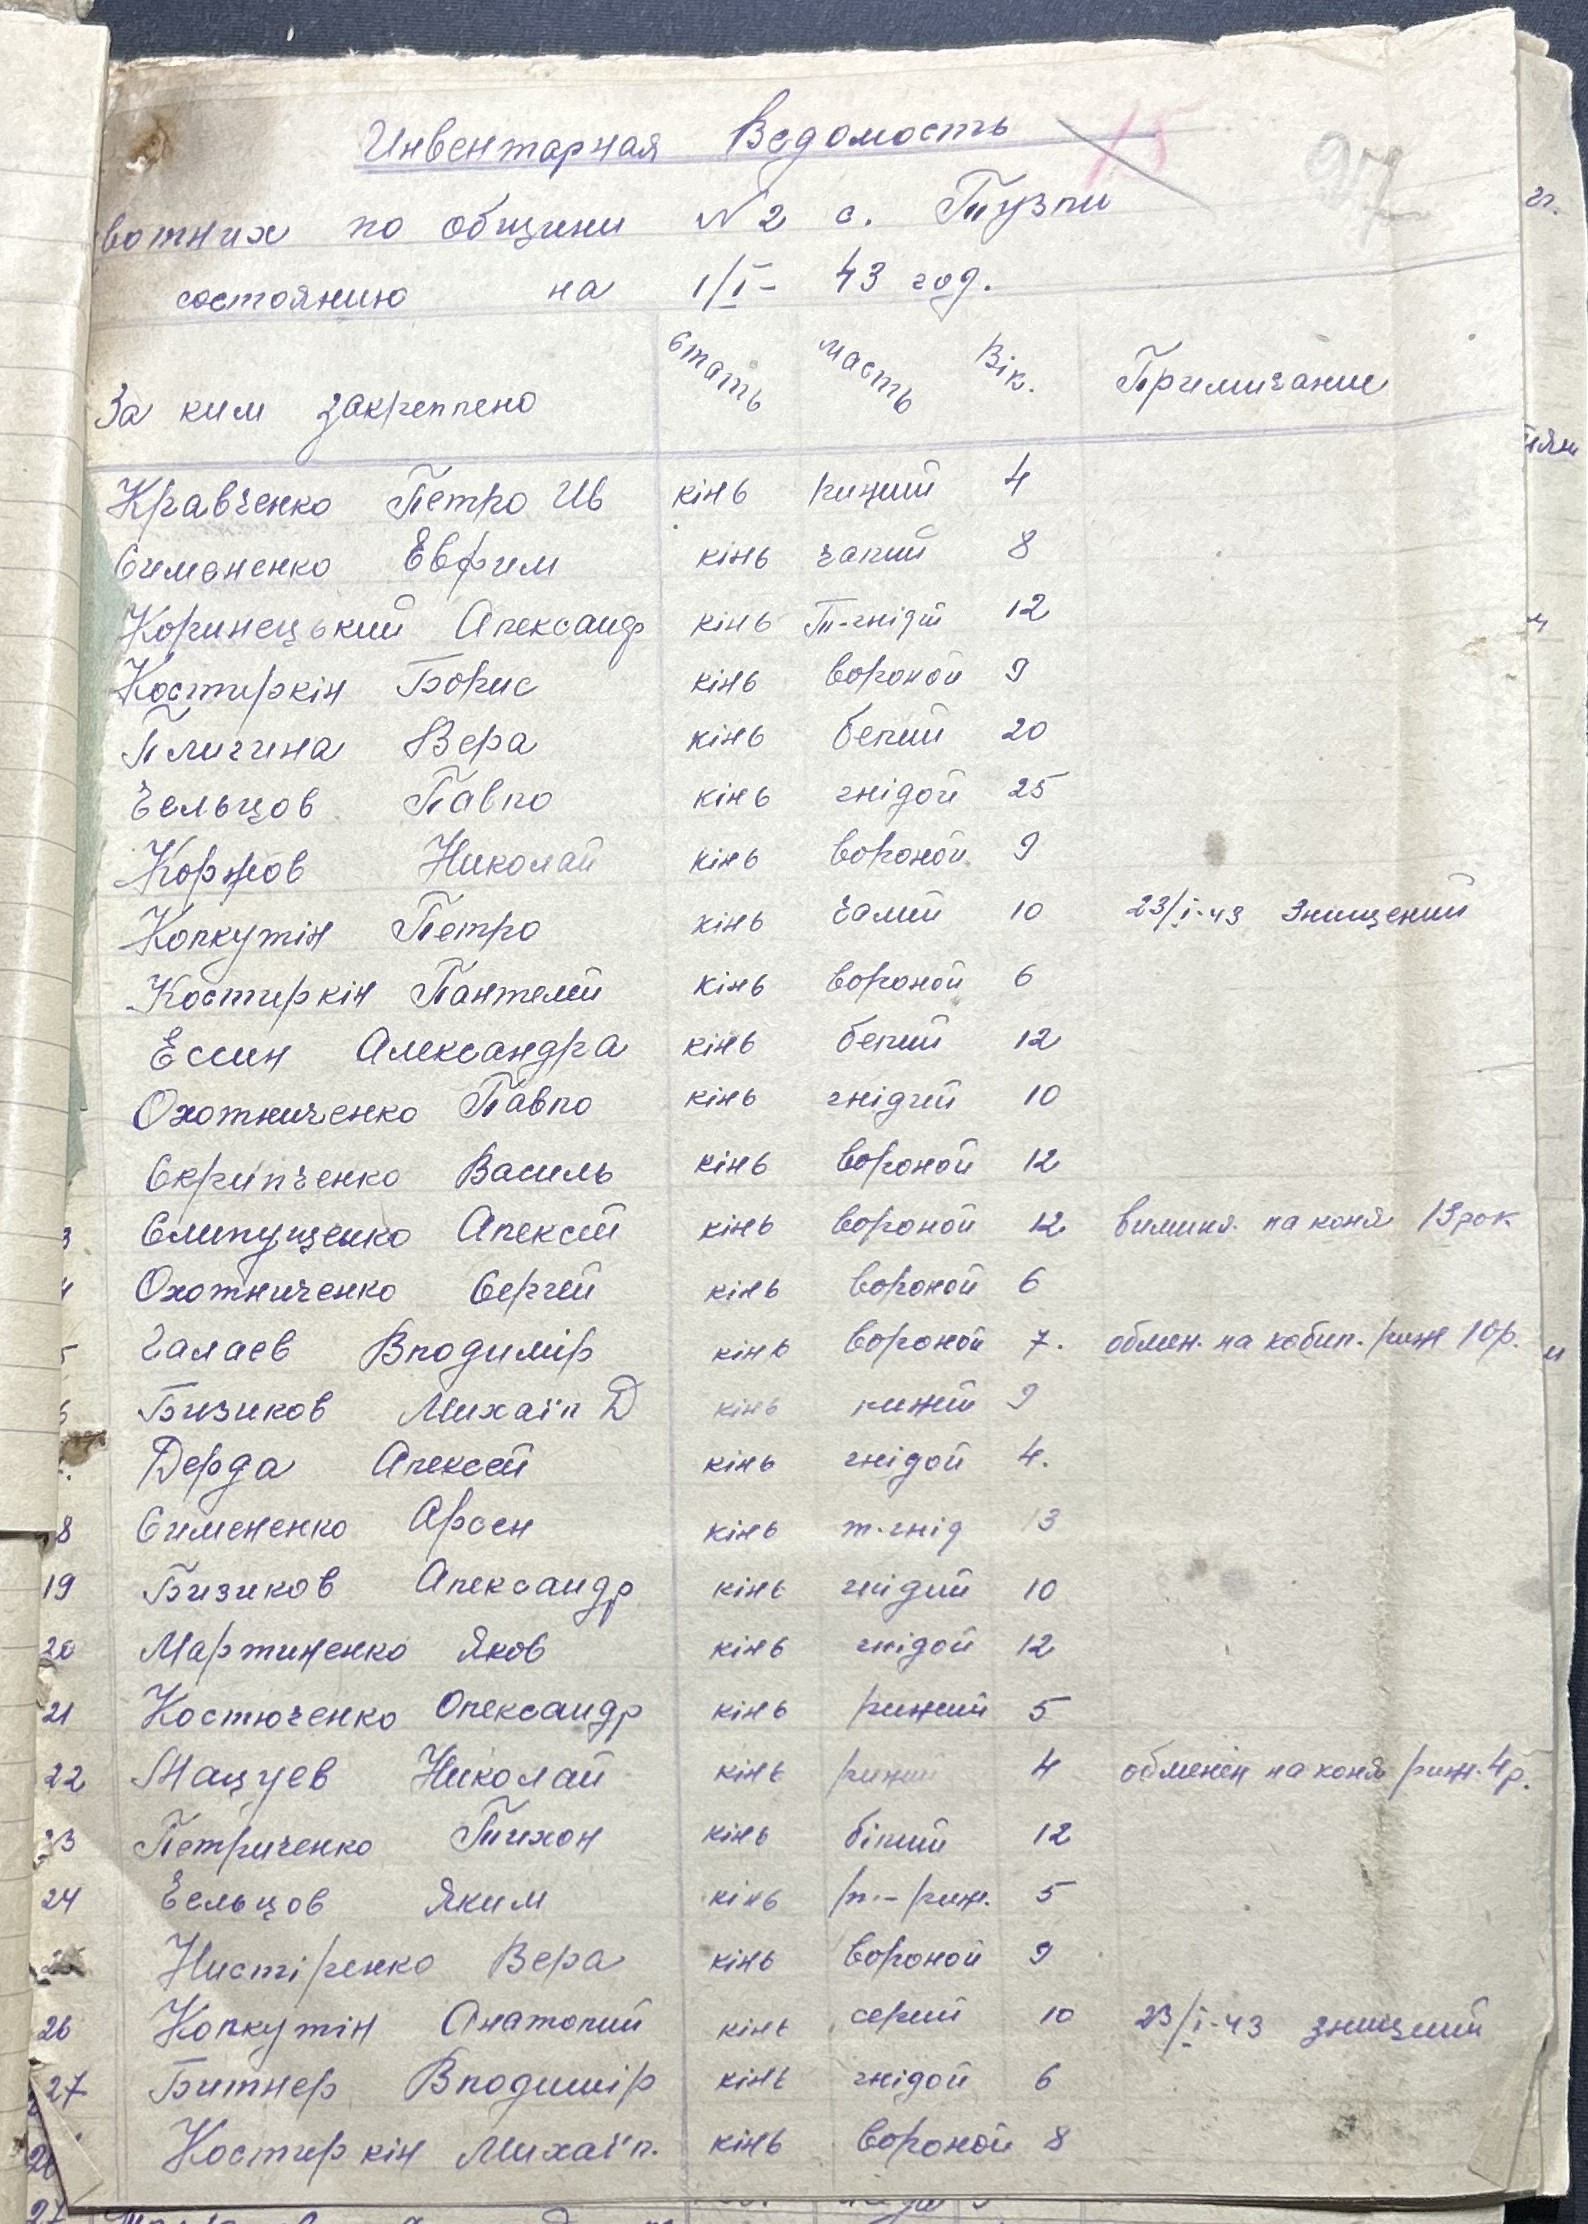 Инвентарная Ведомость 15
97
вотних по общини №2 с. Тузли
состоянию на 1/I- 43 год.
За ким закреплено Стать масть Вік. Примичание
Кравченко Петро Ив кінь рижий 4
Симоненко Ефрим кінь чалий 8
Коринецький Александр кінь Т-гнідй 12
Костиркін Борис кінь вороной 9
Пличина Вера кінь белий 20
Ельцов Павло кінь гнідой 25
Коржов Николай кінь вороной 9
Колкутін Петро кінь чалий 10 23/I-43 Знищений
Костиркін Пантелей кінь вороной 6
Ессин Александра кінь белий 12
Охотниченко Павло кінь гнідий 10
Скрипченко Василь кінь вороной 12
3 Слипущенко Алексей кінь вороной 12 на коня 13 рок
4 Охотниченко Сергей кінь вороной 6
5 Галаев Владимір кінь вороной 7. обмен. на кобил. риж 10р.
6 Бизиков Михаїл Д кінь рижий 9
Дерда Алексей кінь гнідой 4.
8 Симененко Арсен кінь т-гнід 13
19 Бизиков Александр кінь гнідий 10
20 Мартиненко Яков кінь гнідой 12
21 Костюченко Олександр кінь рижий 5
22 Мацуев Николай кінь рижий 4 обменен на коня риж. 4р.
23 Петриченко Тихон кінь білий 12
24 Ельцов Яким кінь риж. 5
25 Нистіренко Вера кінь вороной 9
26 Колкутін Анатолий кінь серий 10 23/I-43 знищений
27 Битнер Владимір кінь гнідой 6
Костиркін Михаїл. кінь вороной 8
27